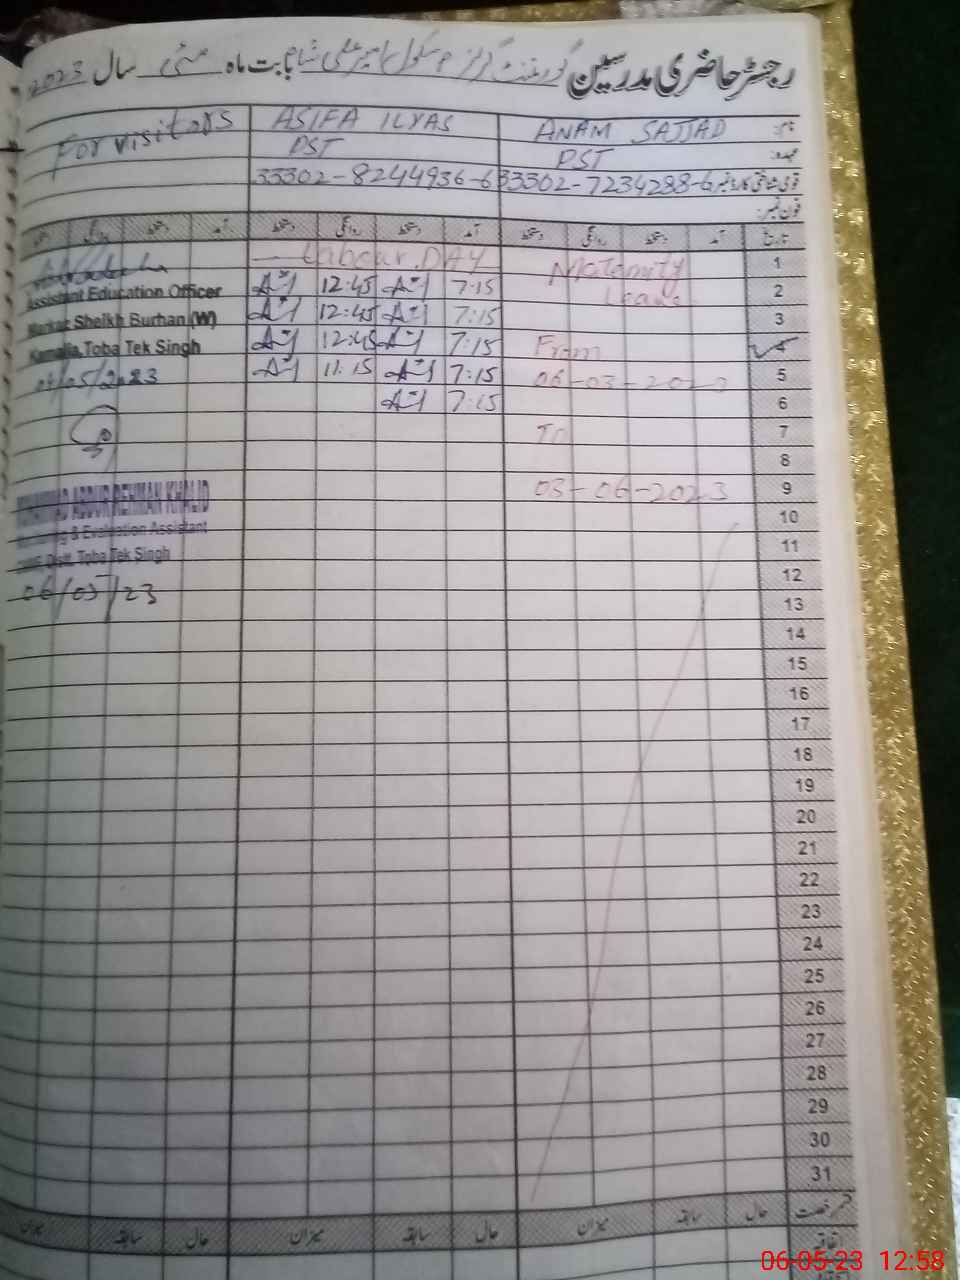 رجسٹر حاضری مدرسین گورنمنٹ گرلز سکول امیر علی شاہ بابت ماہ مئی سال 2023
نام: ANAM SAJJAD ASIFA ILYAS For visitors
عہدہ: PST PST
قومی شناختی کارڈ نمبر 33302-7234288-6 33302-8244936-6
فون نمبر:
تاریخ آمد دستخط روانگی دستخط آمد دستخط روانگی دستخط آمد دستخط روانگی دستخط
1 Maternity Labour DAY
2 Leave 7:15 12:45 Assistant Education Officer
3 7:15 12:45 Markaz Sheikh Burhan (W)
4 From 7:15 12:45 Kamalia, Toba Tek Singh
5 06-03-2023 7:15 11:15 04/05/2023
6 7:15
7 To
8
9 03-06-2023 MUHAMMAD ABDUR REHMAN KHALID
10 Monitoring & Evaluation Assistant
11 Distt. Toba Tek Singh
12 06/05/23
13
14
15
16
17
18
19
20
21
22
23
24
25
26
27
28
29
30
31
قسم رخصت حال سابقہ میزان حال سابقہ میزان حال سابقہ میزان
اتفاقیہ
06-05-23 12:58